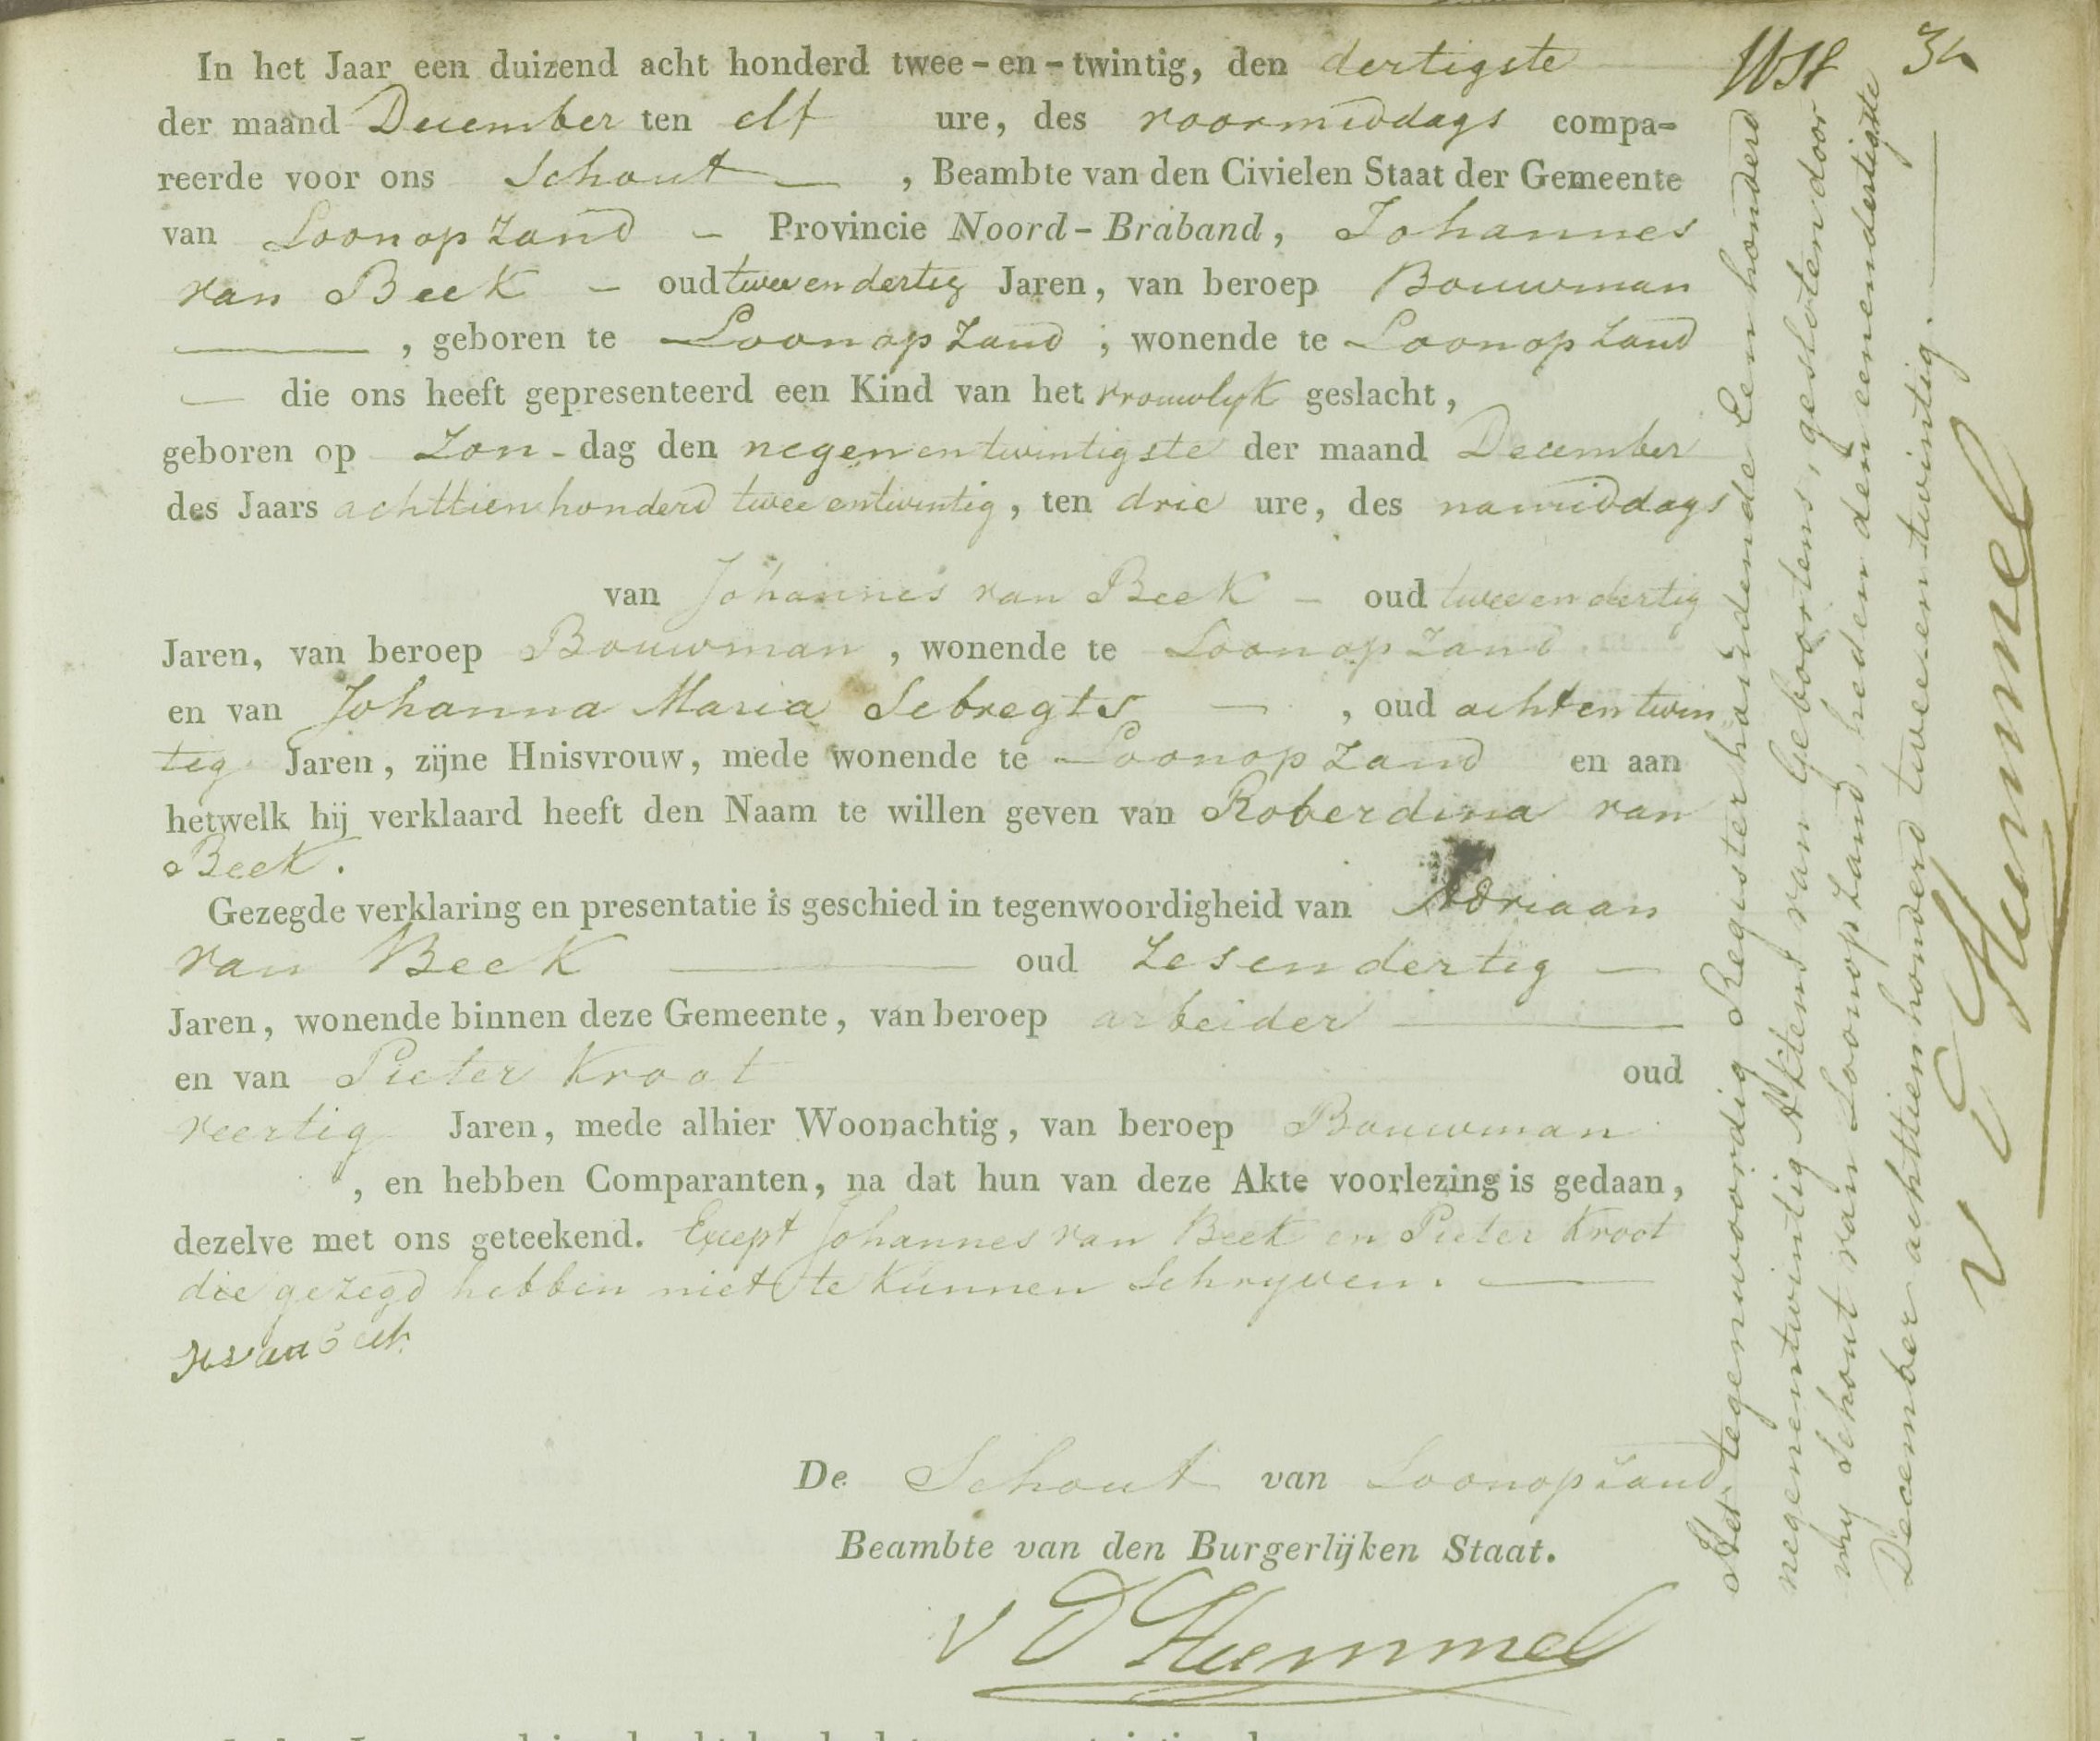 In het Jaar een duizend acht honderd twee-en-twintig, den dertigste
der maand December ten elf ure, des voormiddags compa-
reerde voor ons Schout, Beambte van den Civielen Staat der Gemeente
van Loonopzand - Provincie Noord-Braband, Johannes
van Beek - oud twee en dertig Jaren, van beroep Bouwman
, geboren te Loonopzand; wonende te Loonopzand
die ons heeft gepresenteerd een Kind van het vrouwlyk geslacht,
geboren op Zon-dag den negenentwintigste der maand December
des Jaars achttienhonderd twee entwintig, ten drie ure, des namiddags
van Johannes van Beek - oud twee en dertig
Jaren, van beroep Bouwman, wonende te Loonopzand
en van Johanna Maria Sebregts -, oud acht en twin
tig Jaren, zijne Hnisvrouw, mede wonende te Loonopzand en aan
hetwelk hij verklaard heeft den Naam te willen geven van Roberdina van
Beek.
Gezegde verklaring en presentatie is geschied in tegenwoordigheid van Adriaan
van Beek oud zesendertig -
Jaren, wonende binnen deze Gemeente, van beroep arbeider
en van Pieter Kroot oud
veertig Jaren, mede alhier Woonachtig, van beroep Bouwman
, en hebben Comparanten, na dat hun van deze Akte voorlezing is gedaan,
dezelve met ons geteekend. Exept Johannes van Beek en Pieter Kroot
die gezegd hebben niet te kunnen Schryven.
De Schout van Loonopzand
Beambte van den Burgerlijken Staat.
v D Hummel
Het tegenwoordig Register houdende Een honderd
negenentwintig Aktens van Geboortens, gesloten door
my Schout van Loonopzand, heden den eenendertigste
December achttienhonderd twee en twintig.
v D Hummel
34